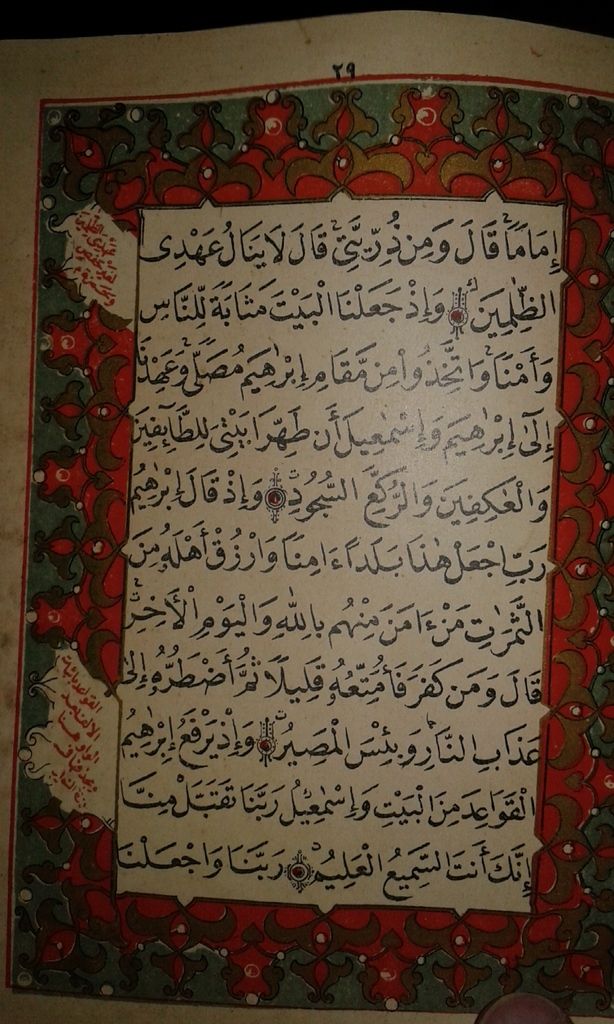 ٢٩
إِمَامًا قَالَ وَمِن ذُرِّيَّتِى قَالَ لَا يَنَالُ عَهْدِى
الظَّٰلِمِينَ وَإِذْ جَعَلْنَا الْبَيْتَ مَثَابَةً لِّلنَّاسِ
وَأَمْنًا وَاتَّخِذُوا مِن مَّقَامِ إِبْرَٰهِيمَ مُصَلًّى وَعَهِدْنَا
إِلَىٰ إِبْرَٰهِيمَ وَإِسْمَٰعِيلَ أَن طَهِّرَا بَيْتِىَ لِلطَّائِفِينَ
وَالْعَٰكِفِينَ وَالرُّكَّعِ السُّجُودِ وَإِذْ قَالَ إِبْرَٰهِيمُ
رَبِّ اجْعَلْ هَٰذَا بَلَدًا ءَامِنًا وَارْزُقْ أَهْلَهُ مِنَ
الثَّمَرَٰتِ مَنْ ءَامَنَ مِنْهُم بِاللَّهِ وَالْيَوْمِ الْأَخِرِ
قَالَ وَمَن كَفَرَ فَأُمَتِّعُهُ قَلِيلًا ثُمَّ أَضْطَرُّهُ إِلَىٰ
عَذَابِ النَّارِ وَبِئْسَ الْمَصِيرُ وَإِذْ يَرْفَعُ إِبْرَٰهِيمُ
الْقَوَاعِدَ مِنَ الْبَيْتِ وَإِسْمَٰعِيلُ رَبَّنَا تَقَبَّلْ مِنَّا
إِنَّكَ أَنتَ السَّمِيعُ الْعَلِيمُ رَبَّنَا وَاجْعَلْنَا